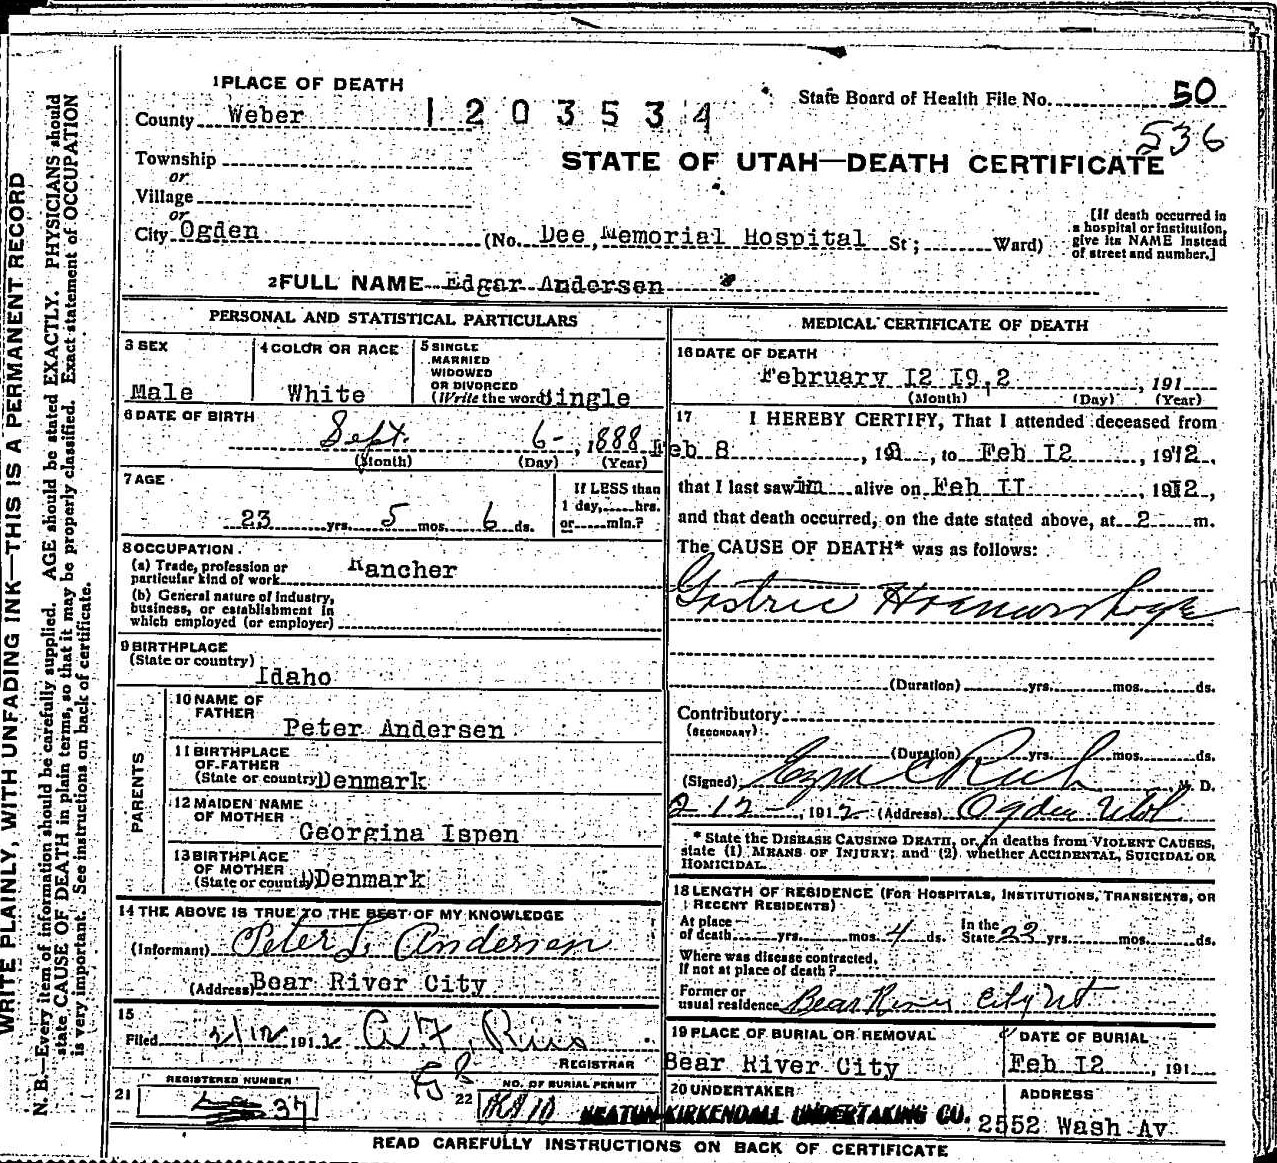 1 PLACE OF DEATH
County Weber
1 2 0 3 5 3 4
State Board of Health File No. 50
536
Township
or
Village
or
City Ogden
STATE OF UTAH—DEATH CERTIFICATE
(No. Dee Memorial Hospital St; Ward)
[If death occurred in
a hospital or institution,
give its NAME instead
of street and number.]
2 FULL NAME Edgar Andersen
PERSONAL AND STATISTICAL PARTICULARS
3 SEX
Male
4 COLOR OR RACE
White
5 SINGLE
MARRIED
WIDOWED
OR DIVORCED
(Write the word) Single
6 DATE OF BIRTH
Sept. 6- , 1888
(Month) (Day) (Year)
7 AGE
23 yrs. 5 mos. 6 ds.
If LESS than
1 day, hrs.
or min.?
8 OCCUPATION
(a) Trade, profession or
particular kind of work Rancher
(b) General nature of industry,
business, or establishment in
which employed (or employer)
9 BIRTHPLACE
(State or country)
Idaho
PARENTS
10 NAME OF
FATHER
Peter Andersen
11 BIRTHPLACE
OF FATHER
(State or country) Denmark
12 MAIDEN NAME
OF MOTHER
Georgina Ispen
13 BIRTHPLACE
OF MOTHER
(State or country) Denmark
14 THE ABOVE IS TRUE TO THE BEST OF MY KNOWLEDGE
(Informant) Peter L. Andersen
(Address) Bear River City
15
Filed 2/12 1912
REGISTRAR
58
21
REGISTERED NUMBER
37
22
NO. OF BURIAL PERMIT
MEDICAL CERTIFICATE OF DEATH
16 DATE OF DEATH
February 12 19 2 , 191
(Month) (Day) (Year)
17 I HEREBY CERTIFY, That I attended deceased from
Feb 8 , 19 , to Feb 12 , 1912,
that I last saw im alive on Feb 11 , 1912,
and that death occurred, on the date stated above, at 2 m.
The CAUSE OF DEATH* was as follows:
Gastric Hemorrhage
(Duration) yrs. mos. ds.
Contributory
(SECONDARY)
(Duration) yrs. mos. ds.
(Signed) Ezra C Rich M. D.
2-12-, 1912 (Address) Ogden Utah
* State the DISEASE CAUSING DEATH, or, in deaths from VIOLENT CAUSES,
state (1) MEANS OF INJURY; and (2) whether ACCIDENTAL, SUICIDAL OR
HOMICIDAL.
18 LENGTH OF RESIDENCE (FOR HOSPITALS, INSTITUTIONS, TRANSIENTS, OR
RECENT RESIDENTS)
At place
of death yrs. mos. 4 ds.
In the
State 22 yrs. mos. ds.
Where was disease contracted,
If not at place of death?
Former or
usual residence Bear River City Ut
19 PLACE OF BURIAL OR REMOVAL
Bear River City
DATE OF BURIAL
Feb 12 , 191
20 UNDERTAKER
KIRKENDALL UNDERTAKING CO.
ADDRESS
2552 Wash Av
READ CAREFULLY INSTRUCTIONS ON BACK OF CERTIFICATE
WRITE PLAINLY, WITH UNFADING INK—THIS IS A PERMANENT RECORD
N. B.—Every item of information should be carefully supplied. AGE should be stated EXACTLY. PHYSICIANS should
state CAUSE OF DEATH in plain terms, so that it may be properly classified. Exact statement of OCCUPATION
is very important. See instructions on back of certificate.